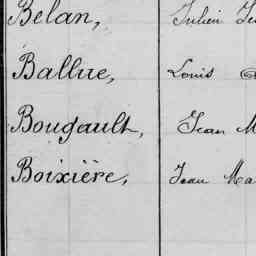 Belan, Julien
Ballue, Louis
Bougault, Jean M
Boixière, Jean Ma